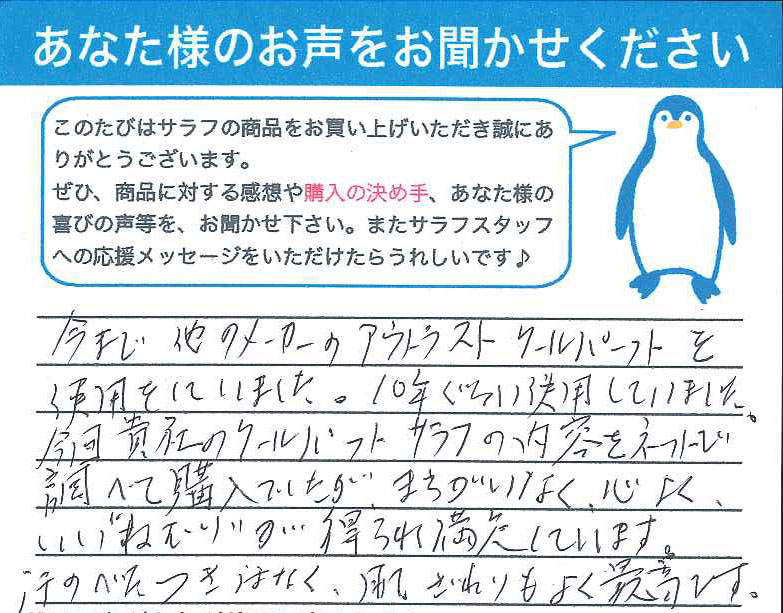 あなた様のお声をお聞かせください
このたびはサラフの商品をお買い上げいただき誠にあ
りがとうございます。
ぜひ、商品に対する感想や購入の決め手、あなた様の
喜びの声等を、お聞かせ下さい。またサラフスタッフ
への応援メッセージをいただけたらうれしいです♪
今まで他のメーカーのアウトラストクールパットを
使用をしていました。10年ぐらい使用していました。
今回貴社のクールパット サラフの内容をネットで
調べて購入でしたが、まちがいなく、心よく、
いい"ねむり"が得られ満足しています。
汗のべたつきはなく、肌ざわりもよく最高です。